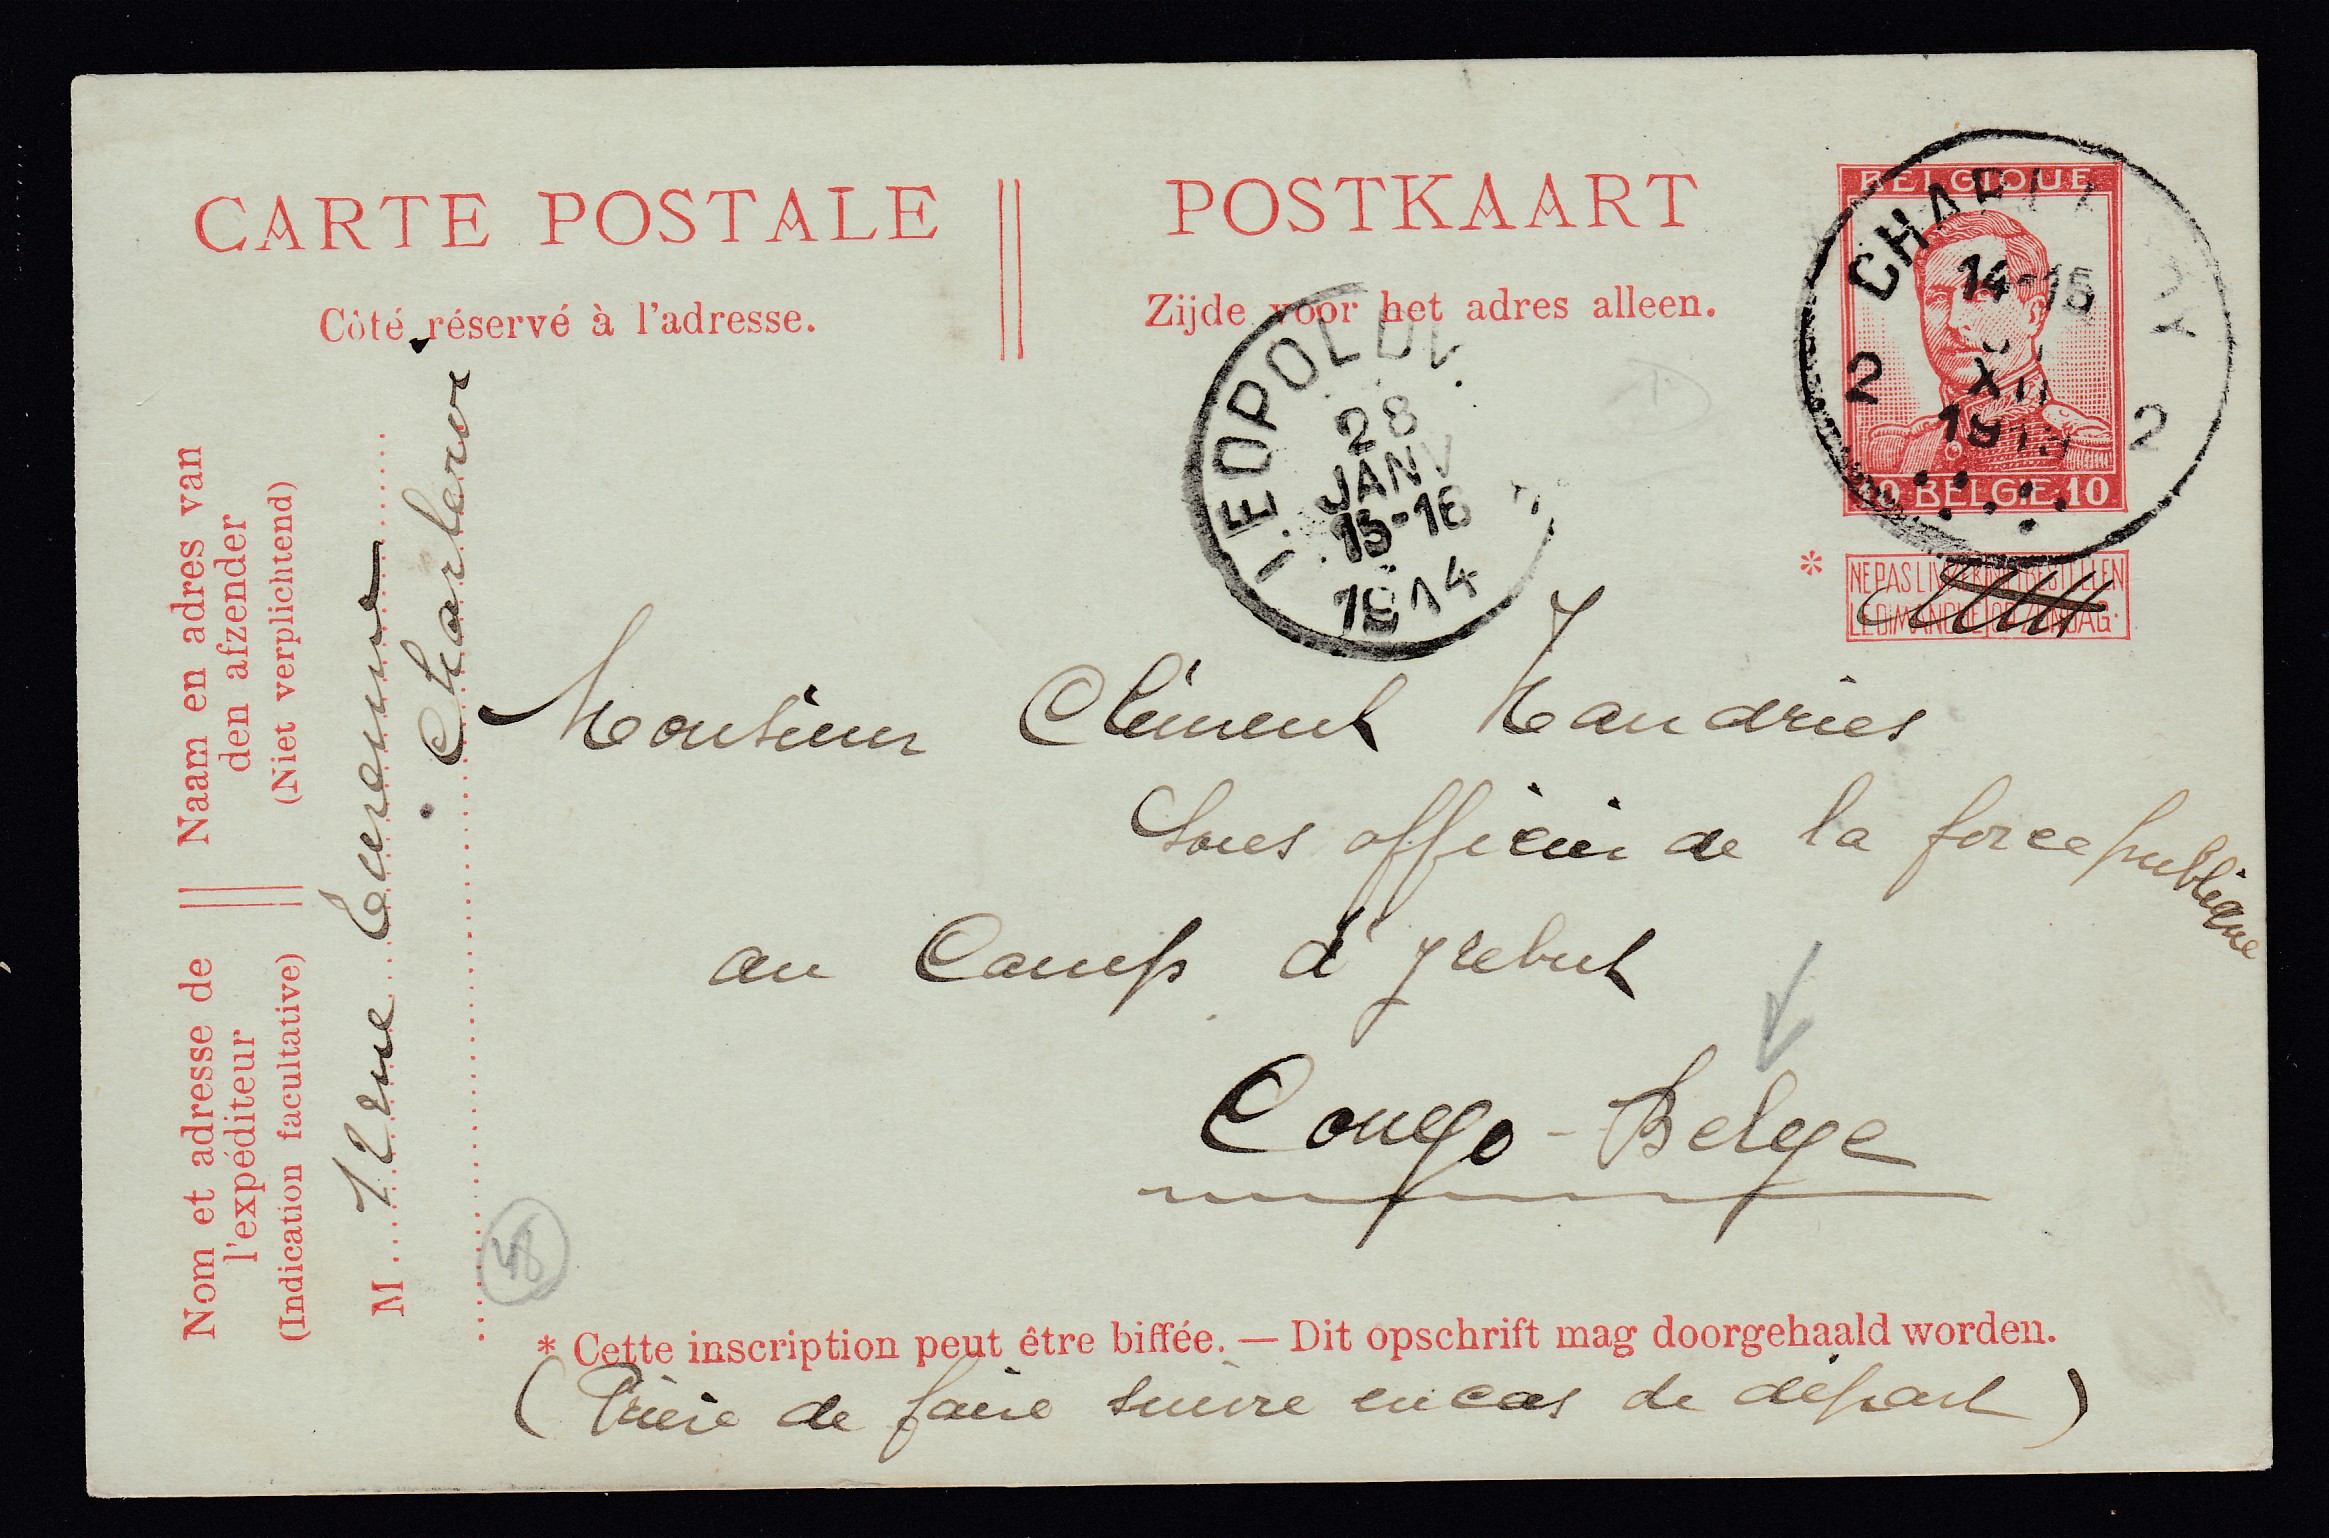 CARTE POSTALE
POSTKAART
Côté réservé à l'adresse.
Zijde voor het adres alleen.
BELGIQUE
10 BELGIE 10
14-15
XII
1913
2 2
28
JANV
15-16
1914
* NE PAS LIVRER NIET BESTELLEN
LE DIMANCHE OP ZONDAG.
Naam en adres van
den afzender
(Niet verplichtend)
Nom et adresse de
l'expéditeur
(Indication facultative)
M
Charleroi
Monsieur Clément
Sous officier de la force publique
au Camp d'Irebut
Congo-Belge
48
* Cette inscription peut être biffée. — Dit opschrift mag doorgehaald worden.
(Prière de faire suivre en cas de départ)